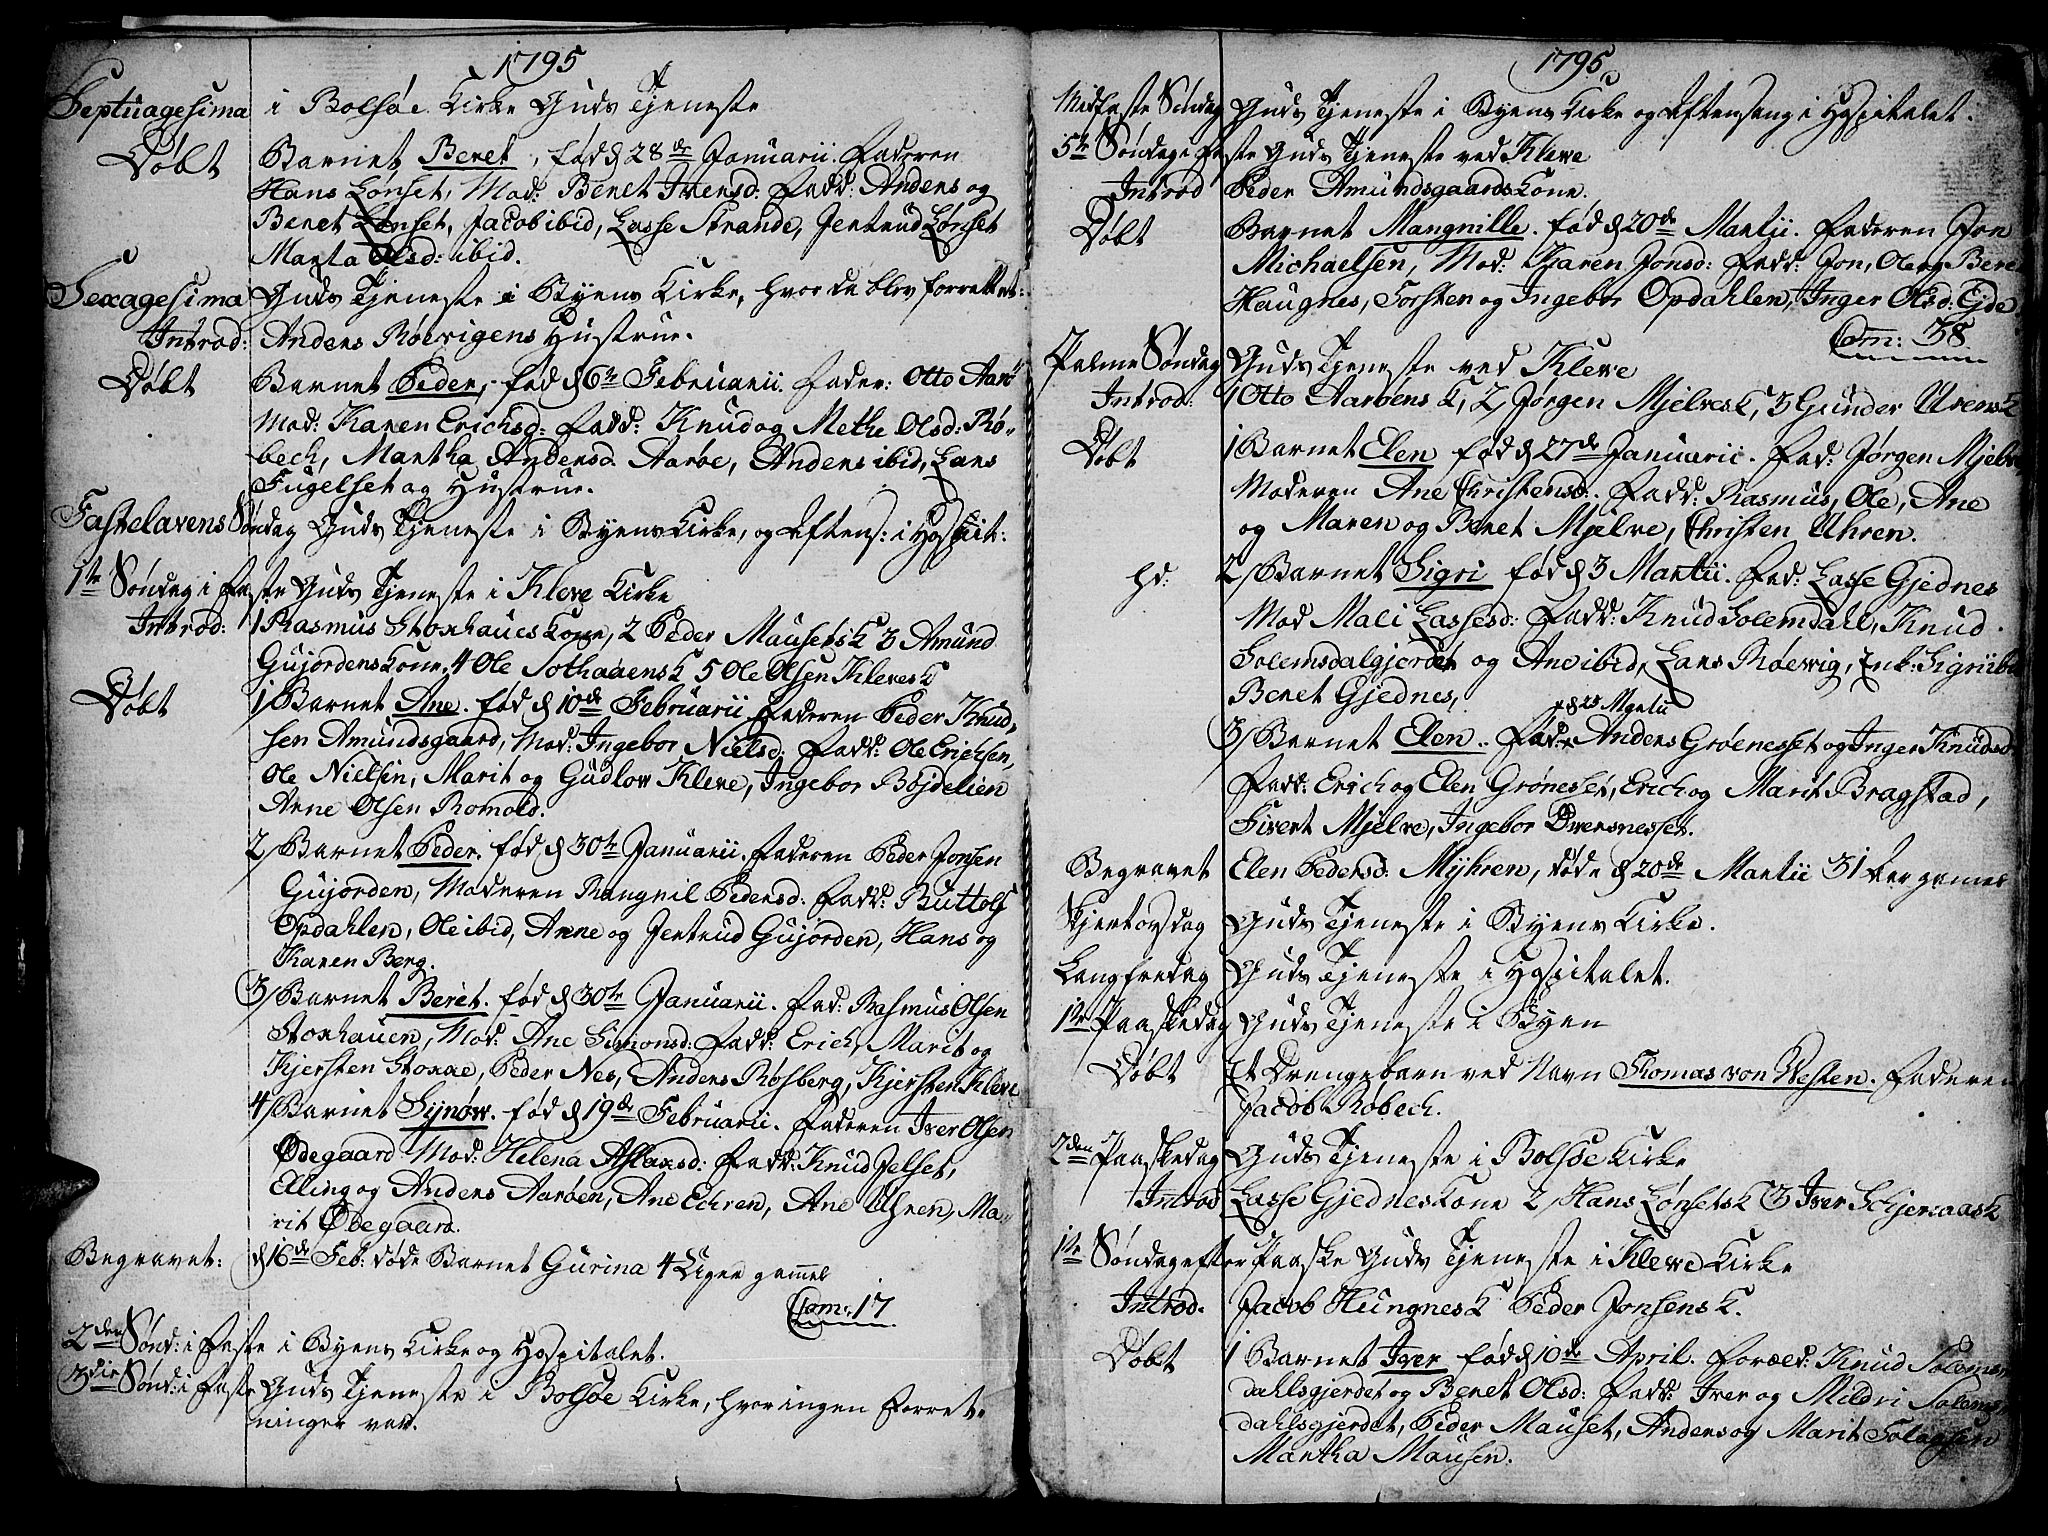 1795
Septuagesima i Bolsøe Kirke Guds Tjeneste
Døbt Barnet Beret, fød d 28de Januarii. Faderen
Hans Lønset, Mod: Beret Iversd: Fadd: Anders og
Beret Lønset, Jacob ibid, Lasse Strande, Jertrud Lønset
Marta Olsd: ibid.
Sexagesima Guds Tjeneste i Byens Kirke, hvor da blev forrettet:
Introd: Anders Røevigens Hustrue.
Døbt Barnet Peder, fød d 6te Februarii. Fader: Otto Aarö
Mod: Karen Erichsd: Fadd: Knud og Methe Olsd: Rø-
bech, Martha Andersd. Aarøe, Anders ibid, Lars
Fugelset og Hustrue.
Fastelavens Søndag Guds Tjeneste i Byens Kirke, og Aftens: i Hospit:
1te Søndag i Faste Guds Tjeneste i Kleve Kirke
Introd: 1 Rasmus Stoxhaues Kone, 2 Peder Mausets K 3 Amund
Gujordens Kone, 4 Ole Sothaaens K 5 Ole Olsen Kleves K
Døbt 1/ Barnet Ane. fød d 10de Februarii Faderen Peder Knud-
sen Amundsgaard, Mod: Ingebor Nielsd: Fadd: Ole Erichsen,
Ole Nielsen, Marit og Gudlow Kleve, Ingebor Bøjdelien
Arne Olsen Romold.
2/ Barnet Peder. fød d 30te Januarii. Faderen Peder Jonsen
Gujorden, Moderen Rangnil Pedersd: Fadd: Buttolf
Opdahlen, Ole ibid, Anne og Jertrud Gujorden, Hans og
Karen Berg.
3/ Barnet Beret. fød d 30te Januarii. Fad: Rasmus Olsen
Stoxhauen, Mod: Ane Simonsd: Fadd: Erich, Marit og
Kjersten Stoxne, Peder Nes, Anders Røsberg, Kjersten Kleve
4/ Barnet Synøw. fød d 19de Februarii. Faderen Iver Olsen
Ødegaard Mod: Helena Aslaxsd: Fadd: Knud Jelset,
Elling og Anders Aarøen, Ane Echren, Ane Uhren, Ma-
rit Ødegaard.
Begravet: d 16de Feb: døde Barnet Gurina 4 Uger gammel
Com: 17
2den Sønd: i Faste i Byens Kirke og Hospitalet.
3die Sønd: i Faste Guds Tjeneste i Bolsøe Kirke, hvor ingen Forret-
ninger var.
1795
Midfaste Søndag Guds Tjeneste i Byens Kirke og Aftensang i Hospitalet.
5te Søndag i Faste Guds Tjeneste ved Kleve
Introd Peder Amundsgaards Kone.
Døbt Barnet Mangnille. fød d 20de Martii. Faderen Jon
Michaelsen, Mod: Karen Jonsd: Fadd: Jon, Ole og Beret
Haugnes, Torsten og Ingebor Opdahlen, Inger Olsd: Ejde
Com: 38
Palme Søndag Guds Tjeneste ved Kleve
Introd: 1 Otto Aarøens K, 2 Jørgen Mjelves K, 3 Gunder Urens K
Døbt 1 Barnet Elen fød d 27de Januarii. Fad: Jørgen Mjelve
Moderen Ane Christensd: Fadd: Rasmus, Ole, Ane
og Maren og Beret Mjelve, Christen Uhren.
hd: 2/ Barnet Sigri fød d 3 Martii. Fad: Lasse Gjednes
Mod Mali Lassesd: Fadd: Knud Solemdahl, Knud
Solemsdalgjerdet og Ane ibid, Lars Røevig, Enk: Sigri ibid
Beret Gjednes,
f d 25 Martii
3/ Barnet Elen. Fad: Anders Grøenesset og Inger Knudsd
Fadd: Erich og Elen Grønesset, Erich og Marit Bragstad,
Sivert Mjelve, Ingebor Dversnesset.
Begravet Elen Pedersd: Myhren, døde d 20de Martii 31 Aar gammel
Skjertorsdag Guds Tjeneste i Byens Kirke.
Langfredag Guds Tjeneste i Hospitalet.
1te Paaskedag Guds Tjeneste i Byen
Døbt Et Drengebarn ved Navn Thomas von Westen. Faderen
Jacob Røbech.
2den Paaskedag Guds Tjeneste i Bolsøe Kirke
Introd Lasse Gjednes Kone 2 Hans Lønsets K 3 Iver Schjeraas K
1te Søndag efter Paaske Guds Tjeneste i Kleve Kirke
Introd. Jacob Hungnes K Peder Jonsens K.
Døbt 1 Barnet Iver fød d 10de April. Foræld: Knud Solems-
dahlsgjerdet og Beret Olsd: Fadd: Iver og Mildri Solems-
dahlsgjerdet, Peder Mauset, Anders og Marit
Martha Mausen.